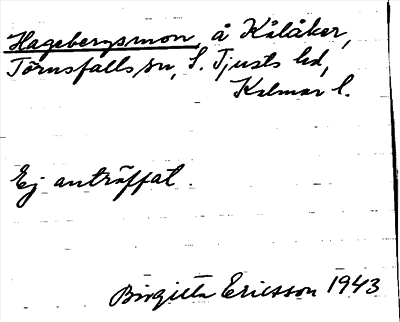 Hagebergsmon, å Kålåker,
Törnsfalls sn, S. Tjusts hd,
Kalmar l.
Ej anträffat.
Birgitta Ericsson 1943